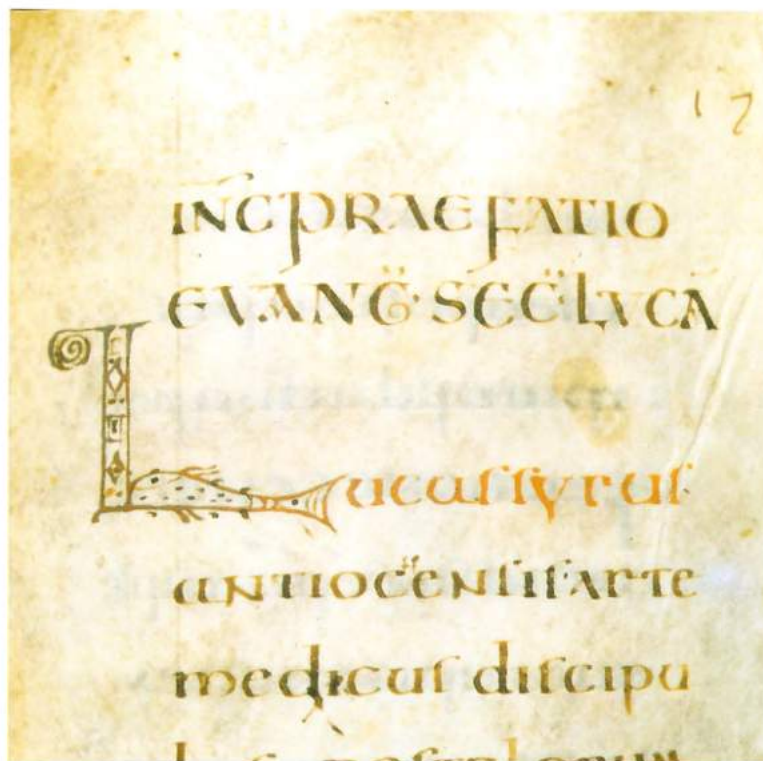 17
INC̅ PRAEFATIO
EVANG̈· SEC̈· LVCĀ
Lucas syrus
ANTIOC̈ENSIS· ARTE
medicus discipu